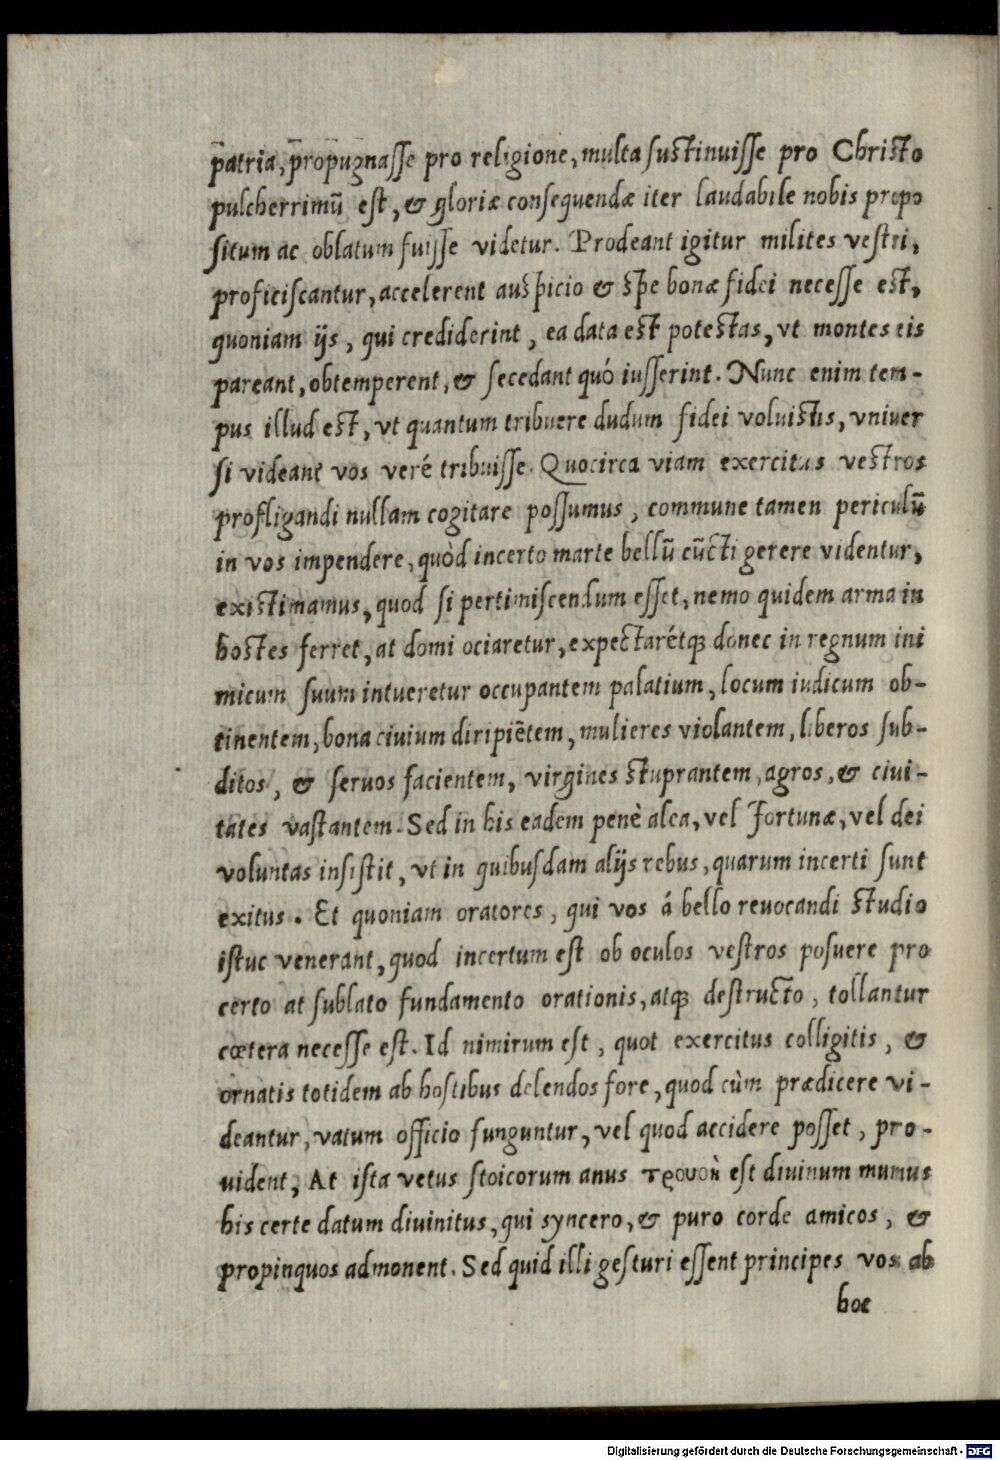 patria, propugnasse pro religione, multa sustinuisse pro Christo
pulcherrimū est, & gloriæ consequendæ iter laudabile nobis propo
situm ac oblatum fuisse videtur. Prodeant igitur milites vestri,
proficiscantur, accelerent auspicio & spe bonæ fidei necesse est,
quoniam ijs, qui crediderint, ea data est potestas, vt montes eis
pareant, obtemperent, & secedant quó iusserint. Nunc enim tem-
pus illud est, vt quantum tribuere dudum fidei voluistis, vniuer
si videant vos veré tribuisse. Quocirca viam exercitus vestros
profligandi nullam cogitare possumus, commune tamen periculū
in vos impendere, quòd incerto marte bellū cūcti gerere videntur,
existimamus, quod si pertimiscendum esset, nemo quidem arma in
hostes ferret, at domi ociaretur, expectarétqꝫ donec in regnum ini
micum suum intueretur occupantem palatium, locum iudicum ob-
tinentem, bona ciuium diripiētem, mulieres violantem, liberos sub-
ditos, & seruos facientem, virgines stuprantem, agros, & ciui-
tates vastantem. Sed in his eadem penè alea, vel Fortunæ, vel dei
voluntas insistit, vt in quibusdam alijs rebus, quarum incerti sunt
exitus. Et quoniam oratores, qui vos á bello reuocandi studio
istuc venerant, quod incertum est ob oculos vestros posuere pro
certo at sublato fundamento orationis, atqꝫ destructo, tollantur
cœtera necesse est. Id nimirum est, quot exercitus colligitis, &
ornatis totidem ab hostibus delendos fore, quod cùm prædicere vi-
deantur, vatum officio funguntur, vel quod accidere posset, pro-
uident, At ista vetus stoicorum anus est diuinum munus
his certe datum diuinitus, qui syncero, & puro corde amicos, &
propinquos admonent. Sed quid illi gesturi essent principes vos ab
hoc
Digitalisierung gefördert durch die Deutsche Forschungsgemeinschaft - DFG